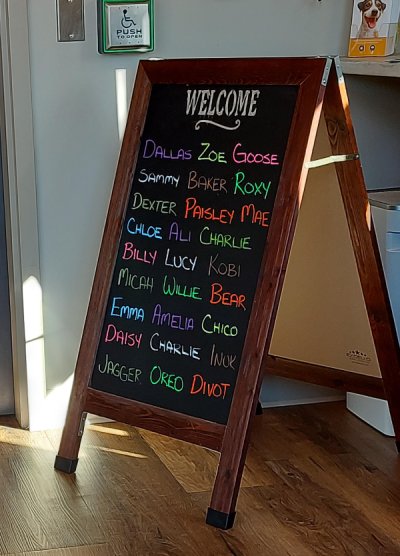 PUSH
TO OPEN
WELCOME
DALLAS ZOE GOOSE
SAMMY BAKER ROXY
DEXTER PAISLEY MAE
CHLOE ALI CHARLIE
BILLY LUCY KOBI
MICAH WILLIE BEAR
EMMA AMELIA CHICO
DAISY CHARLIE INUK
JAGGER OREO DIVOT